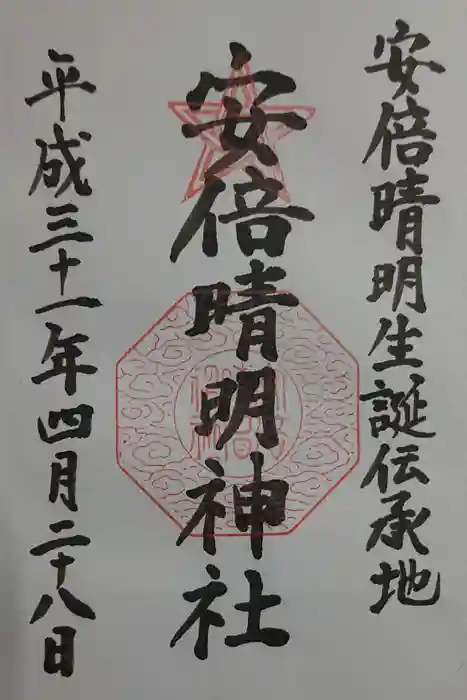 安倍晴明生誕伝承地
安倍晴明神社
平成三十一年四月二十八日